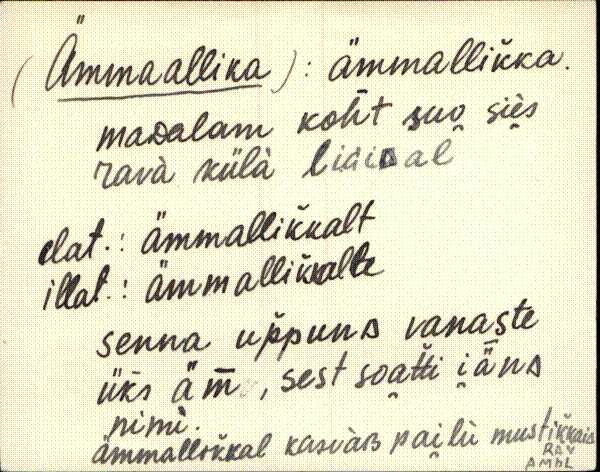 (Ämmaallika): ämmallik̆ka.
maᴅalam koh̄t suo̭ siе̭s
ravà külà liiᴅal
elat.: ämmallik̆kalt
illat.: ämmallik̆kalle
senna up̆punᴅ vanaste
üks äm̄, sest soat̆ti i̭än̄ᴅ
nimi.
ämmallik̆kal kasvàᴅ pai̭lù mustik̆kais
RAV
AMbL